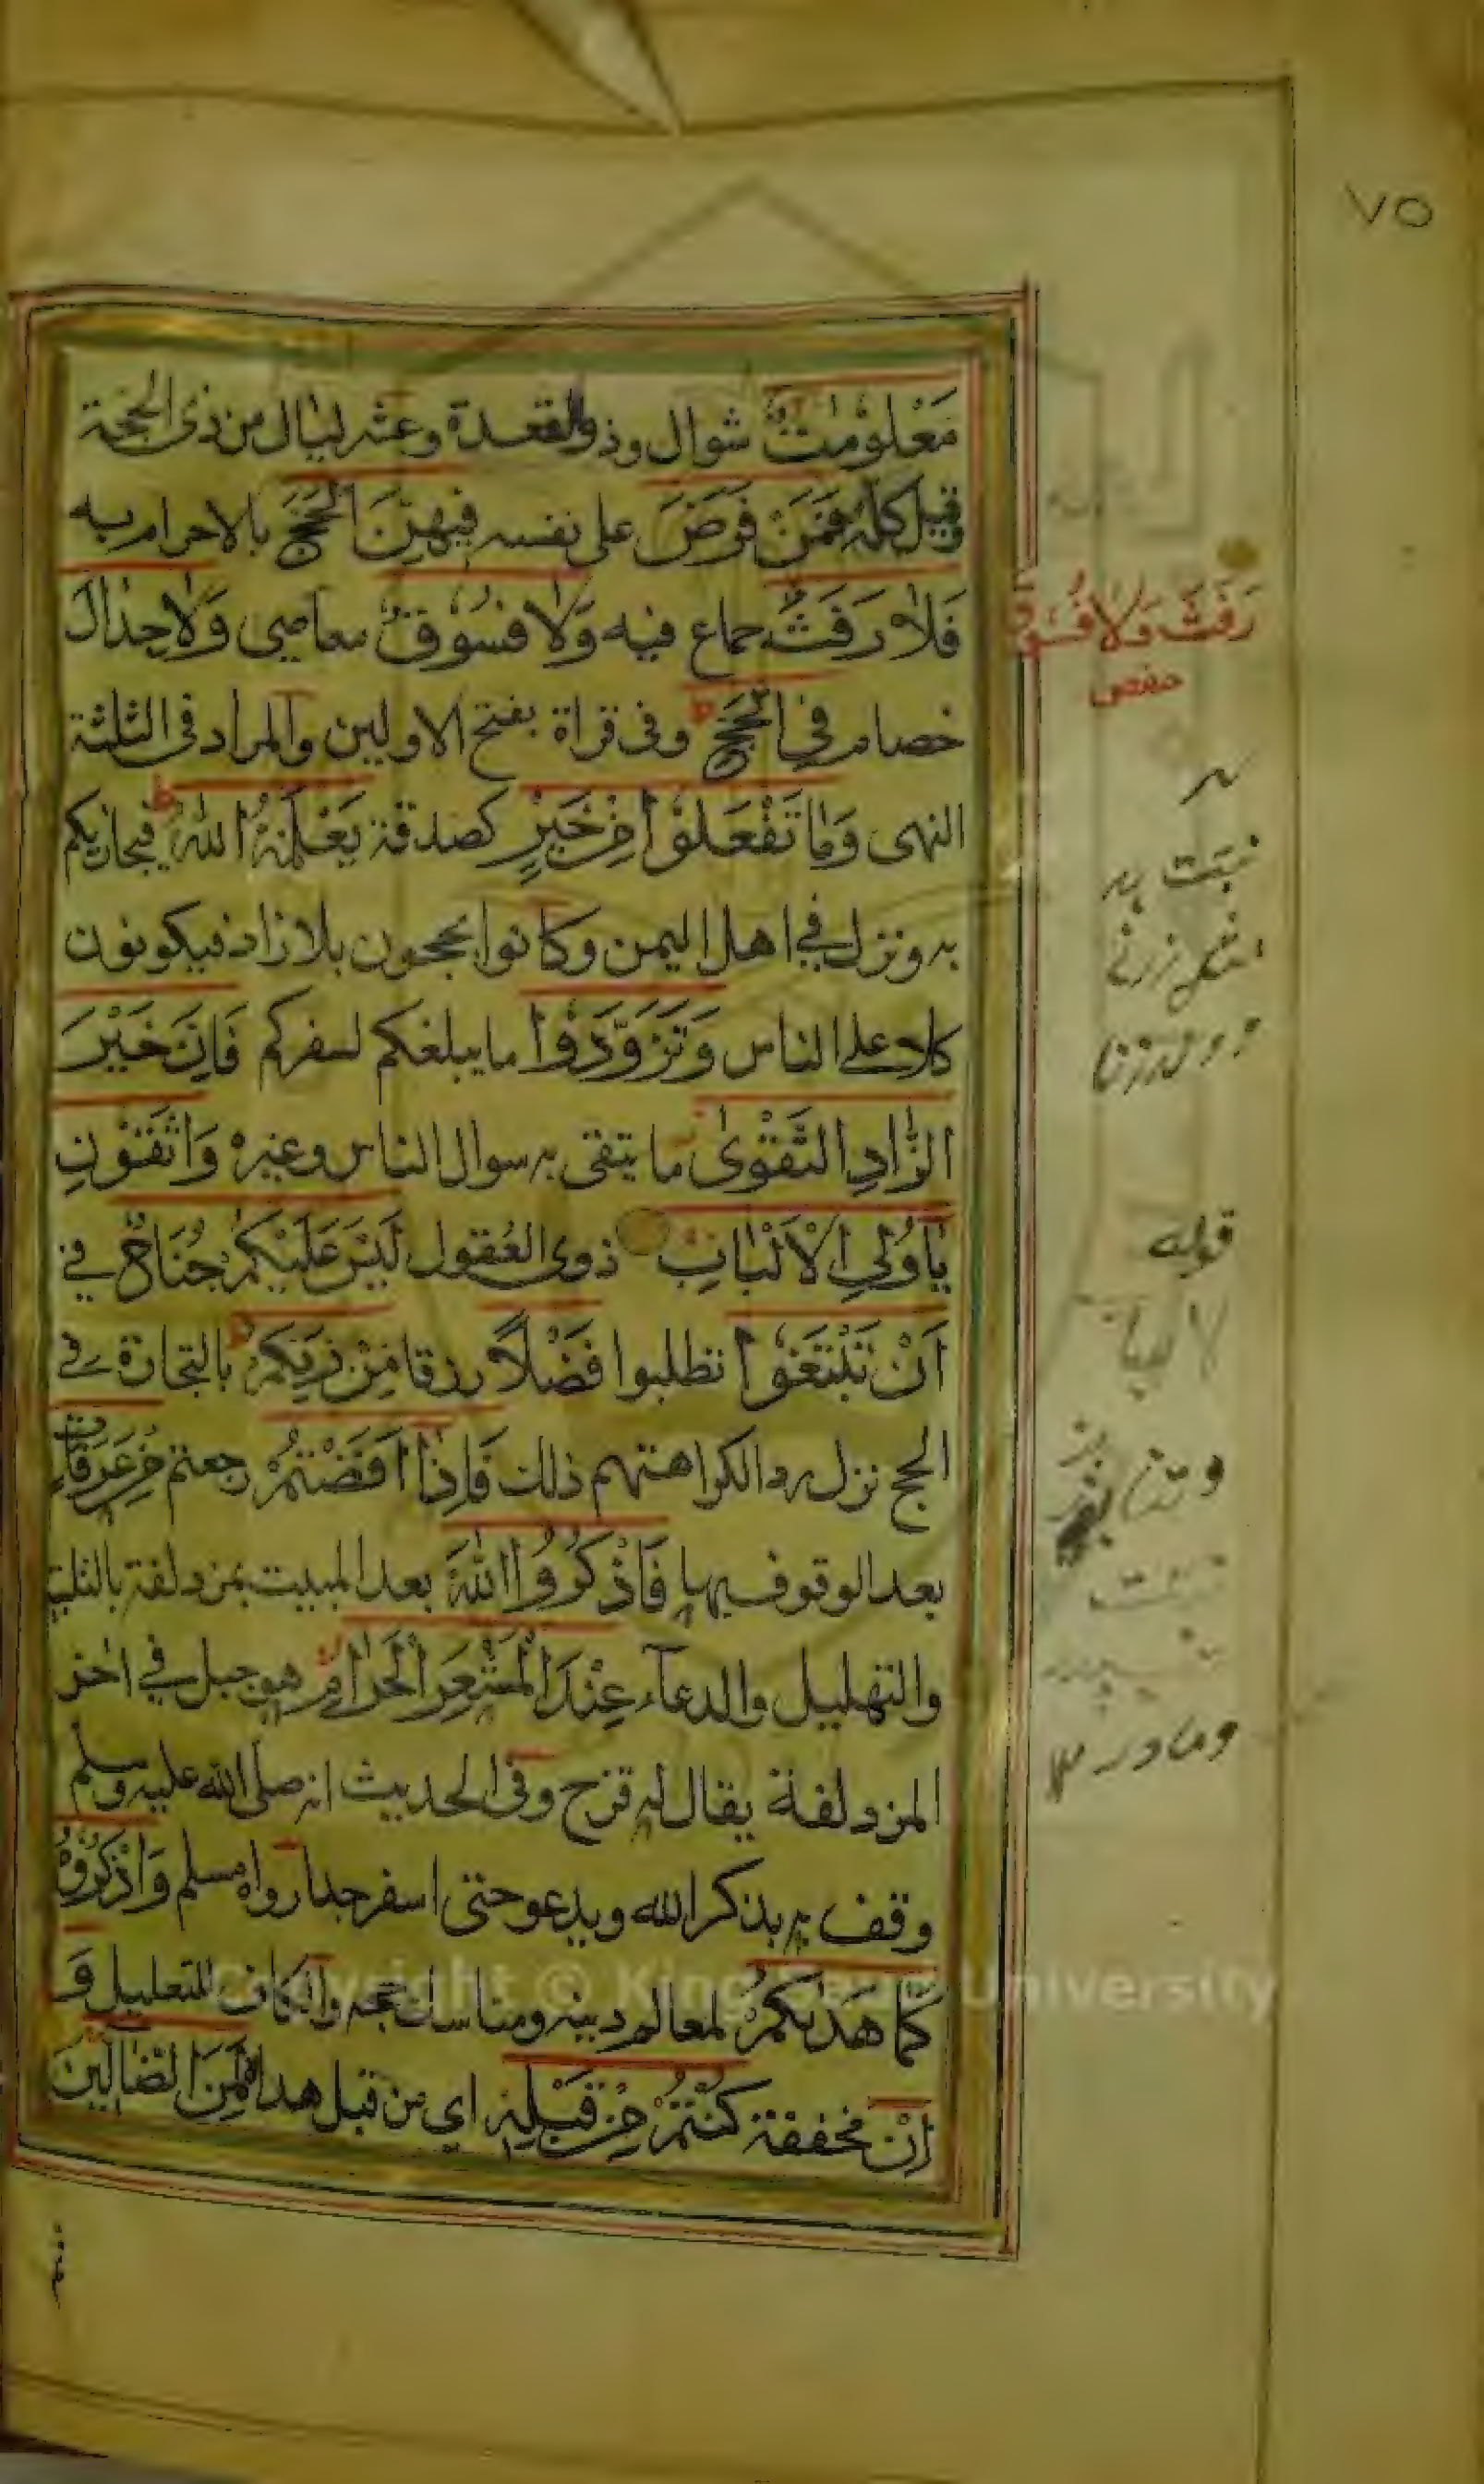 ٧٥
مَعْلُومٰتٌ شوال وذوالقعدة وعشر ليال من ذى الحجة
وقيل كله فَمَنْ فَرَضَ على نفسه فِيهِنَّ الْحَجَّ بالاحرام به
فَلَا رَفَثٌ جماع فيه وَلَا فُسُوقٌ معاصى وَلَا جِدَالَ
خصام فِي الْحَجِّ وفى قراة بفتح الاولين والمراد فى الثلثة
النهى وَمَا تَفْعَلُوْا مِنْ خَيْرٍ كصدقة يَعْلَمْهُ اللهُ فيجازيكم
به ونزل فى اهل اليمن وكانوا يحجون بلا زاد فيكونون
كلا على الناس وَتَزَوَّدُوْا ما يبلغكم لسفركم فَاِنَّ خَيْرَ
الزَّادِ التَّقْوىٰ ما يتقى به سوال الناس وغيره وَاتَّقُوْنِ
يٰاُولِى الْاَلْبَابِ ذوى العقول لَيْسَ عَلَيْكُمْ جُنَاحٌ فى
اَنْ تَبْتَغُوْا تطلبوا فَضْلًا رزقا مِنْ رَبِّكُمْ بالتجارة فى
الحج نزل ردا لكراهتهم ذلك فَاِذَا اَفَضْتُمْ رجعتم مِنْ عَرَفَاتٍ
بعد الوقوف بها فَاذْكُرُوا اللهَ بعد المبيت بمزدلفة بالتلبية
والتهليل والدعآء عِنْدَ الْمَشْعَرِ الْحَرَامِ هو جبل فى اخر
المزدلفة يقال له قزح وفى الحديث انه صلى الله عليه وسلم
وقف به يذكر الله ويدعو حتى اسفر جدا رواه مسلم وَاذْكُرُوْهُ
كَمَا هَدٰىكُمْ لمعالم دينه ومناسك حجه والكاف للتعليل وَ
اِنْ مخففة كُنْتُمْ مِنْ قَبْلِهٖ اى من قبل هداه لَمِنَ الضَّالِّيْنَ
رَفَثَ وَلَا فُسُوقَ
حفص
قوله
Copyright © King Saud University